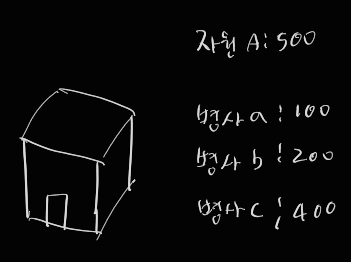 자원 A: 500
병사 a : 100
병사 b : 200
병사 c : 400